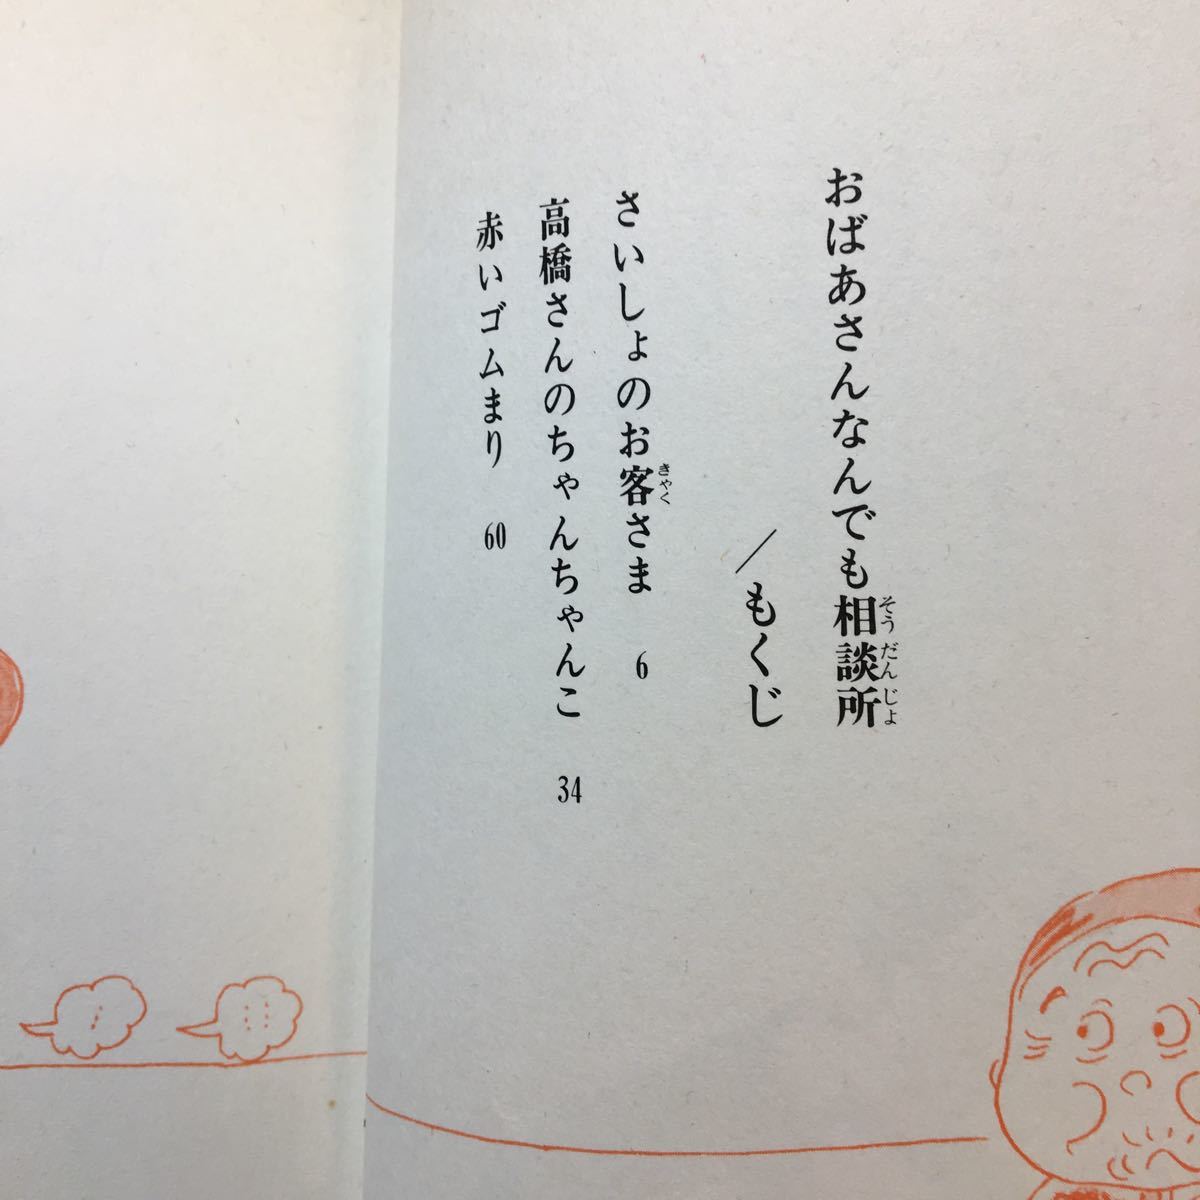 おばあさんなんでも相談所
そうだんじょ
／もくじ
さいしょのお客さま 6
きゃく
高橋さんのちゃんちゃんこ 34
赤いゴムまり 60